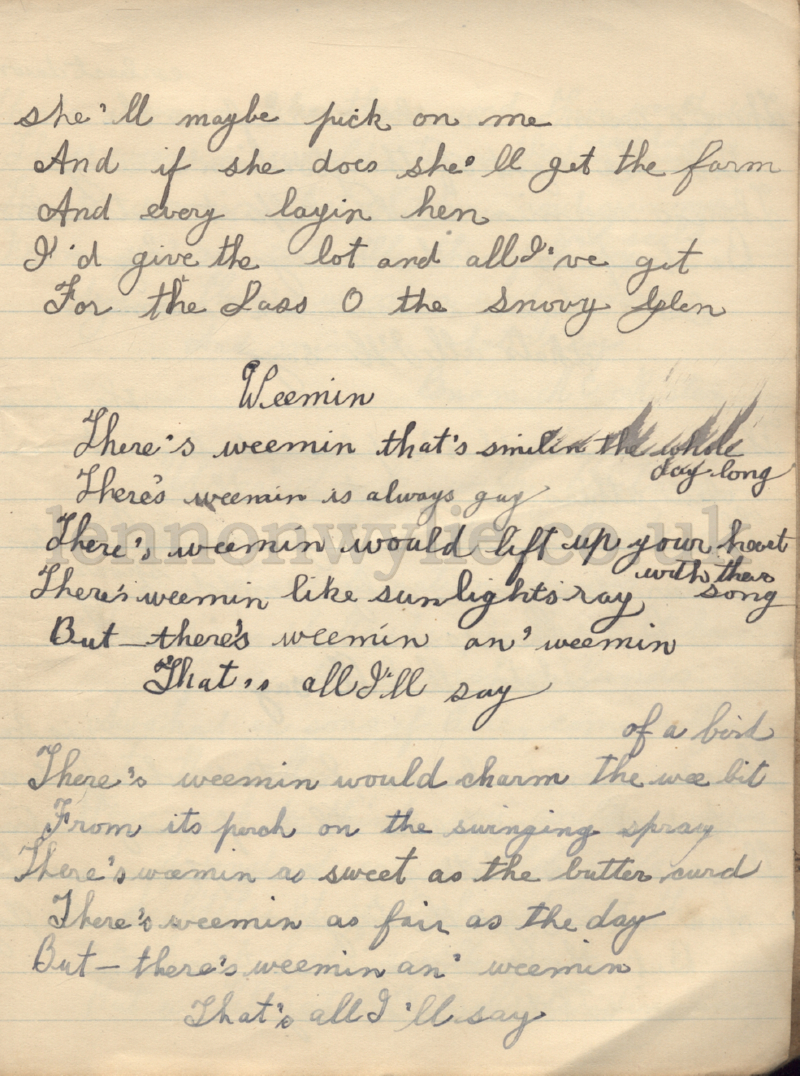 she'll maybe pick on me
And if she does she'll get the farm
And every layin hen
I'd give the lot and all I've got
For the Lass O the Snowy Glen
Weemin
There's weemin that's smilin the whole
day long
There's weemin is always gay
There's weemin would lift up your heart
with ther
song
There's weemin like sunlights ray
But - there's weemin an' weemin
That's all I'll say
of a bird
There's weemin would charm the wee bit
From its perch on the swinging spray
There's weemin as sweet as the butter curd
There's weemin as fair as the day
But - there's weemin an' weemin
That's all I'll say
lennonwylie.co.uk